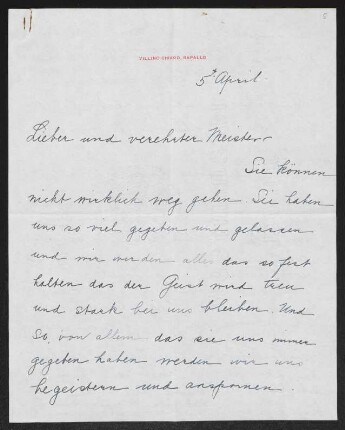 VILLINO CHIARO, RAPALLO
5t April.
Lieber und verehrter Meister
Sie können
nicht wirklich weg gehen Sie haben
uns so viel gegeben und gelassen
und wir werden alles das so fest
halten das der Geist wird treu
und stark bei uns bleiben. Und
so, von allem das sie uns immer
gegeben haben werden wir uns
begeistern und anspornen.